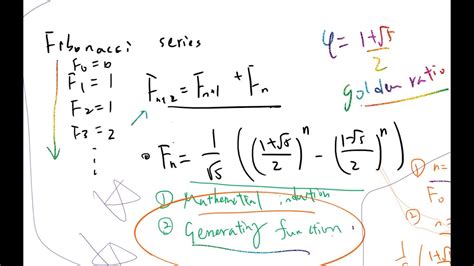 Fibonacci series
F₀ = 0
F₁ = 1
F₂ = 1
F₃ = 2
⋮
Fₙ₊₂ = Fₙ₊₁ + Fₙ
φ = (1+√5)/2
golden ratio
Fₙ = 1/√5 (((1+√5)/2)ⁿ - ((1-√5)/2)ⁿ)
① Mathematical induction
② Generating function
① n=
F₀
② n=